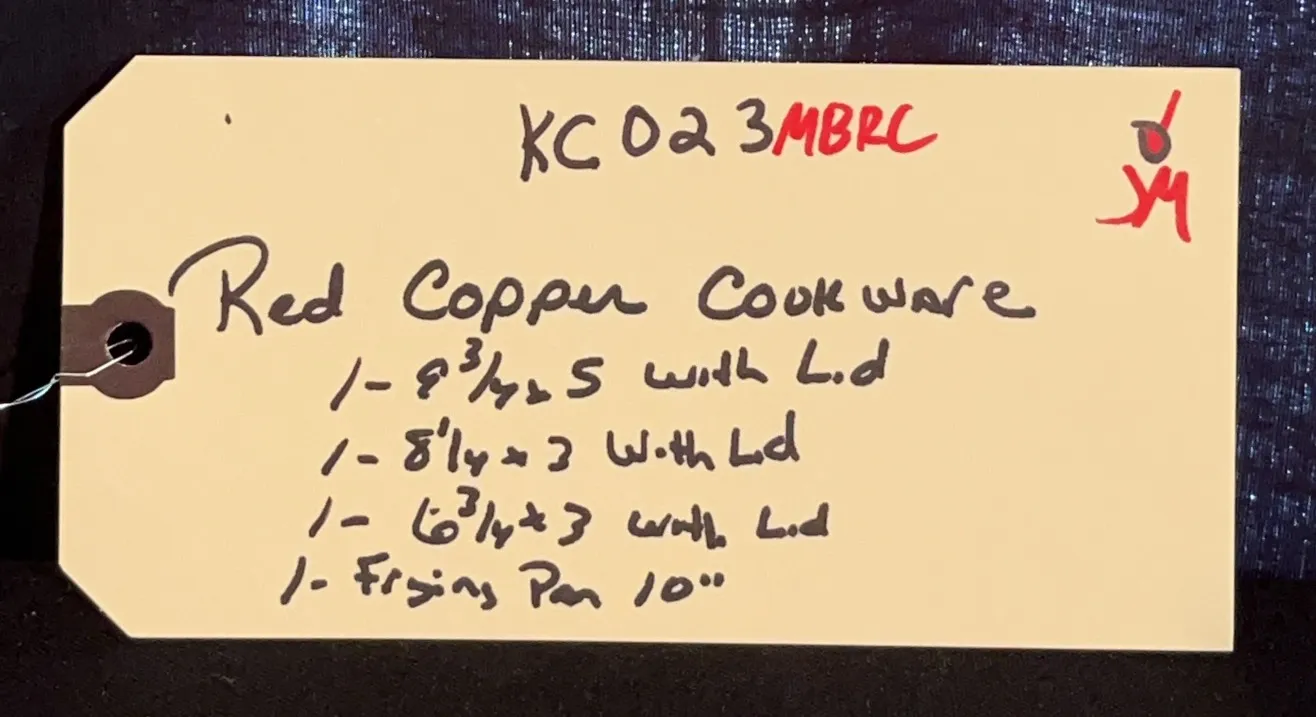 KC023MBRC
JM
Red Copper Cookware
1- 8 3/4 x 5 with Lid
1- 8 1/4 x 3 With Lid
1- 6 3/4 x 3 with Lid
1- Frying Pan 10"